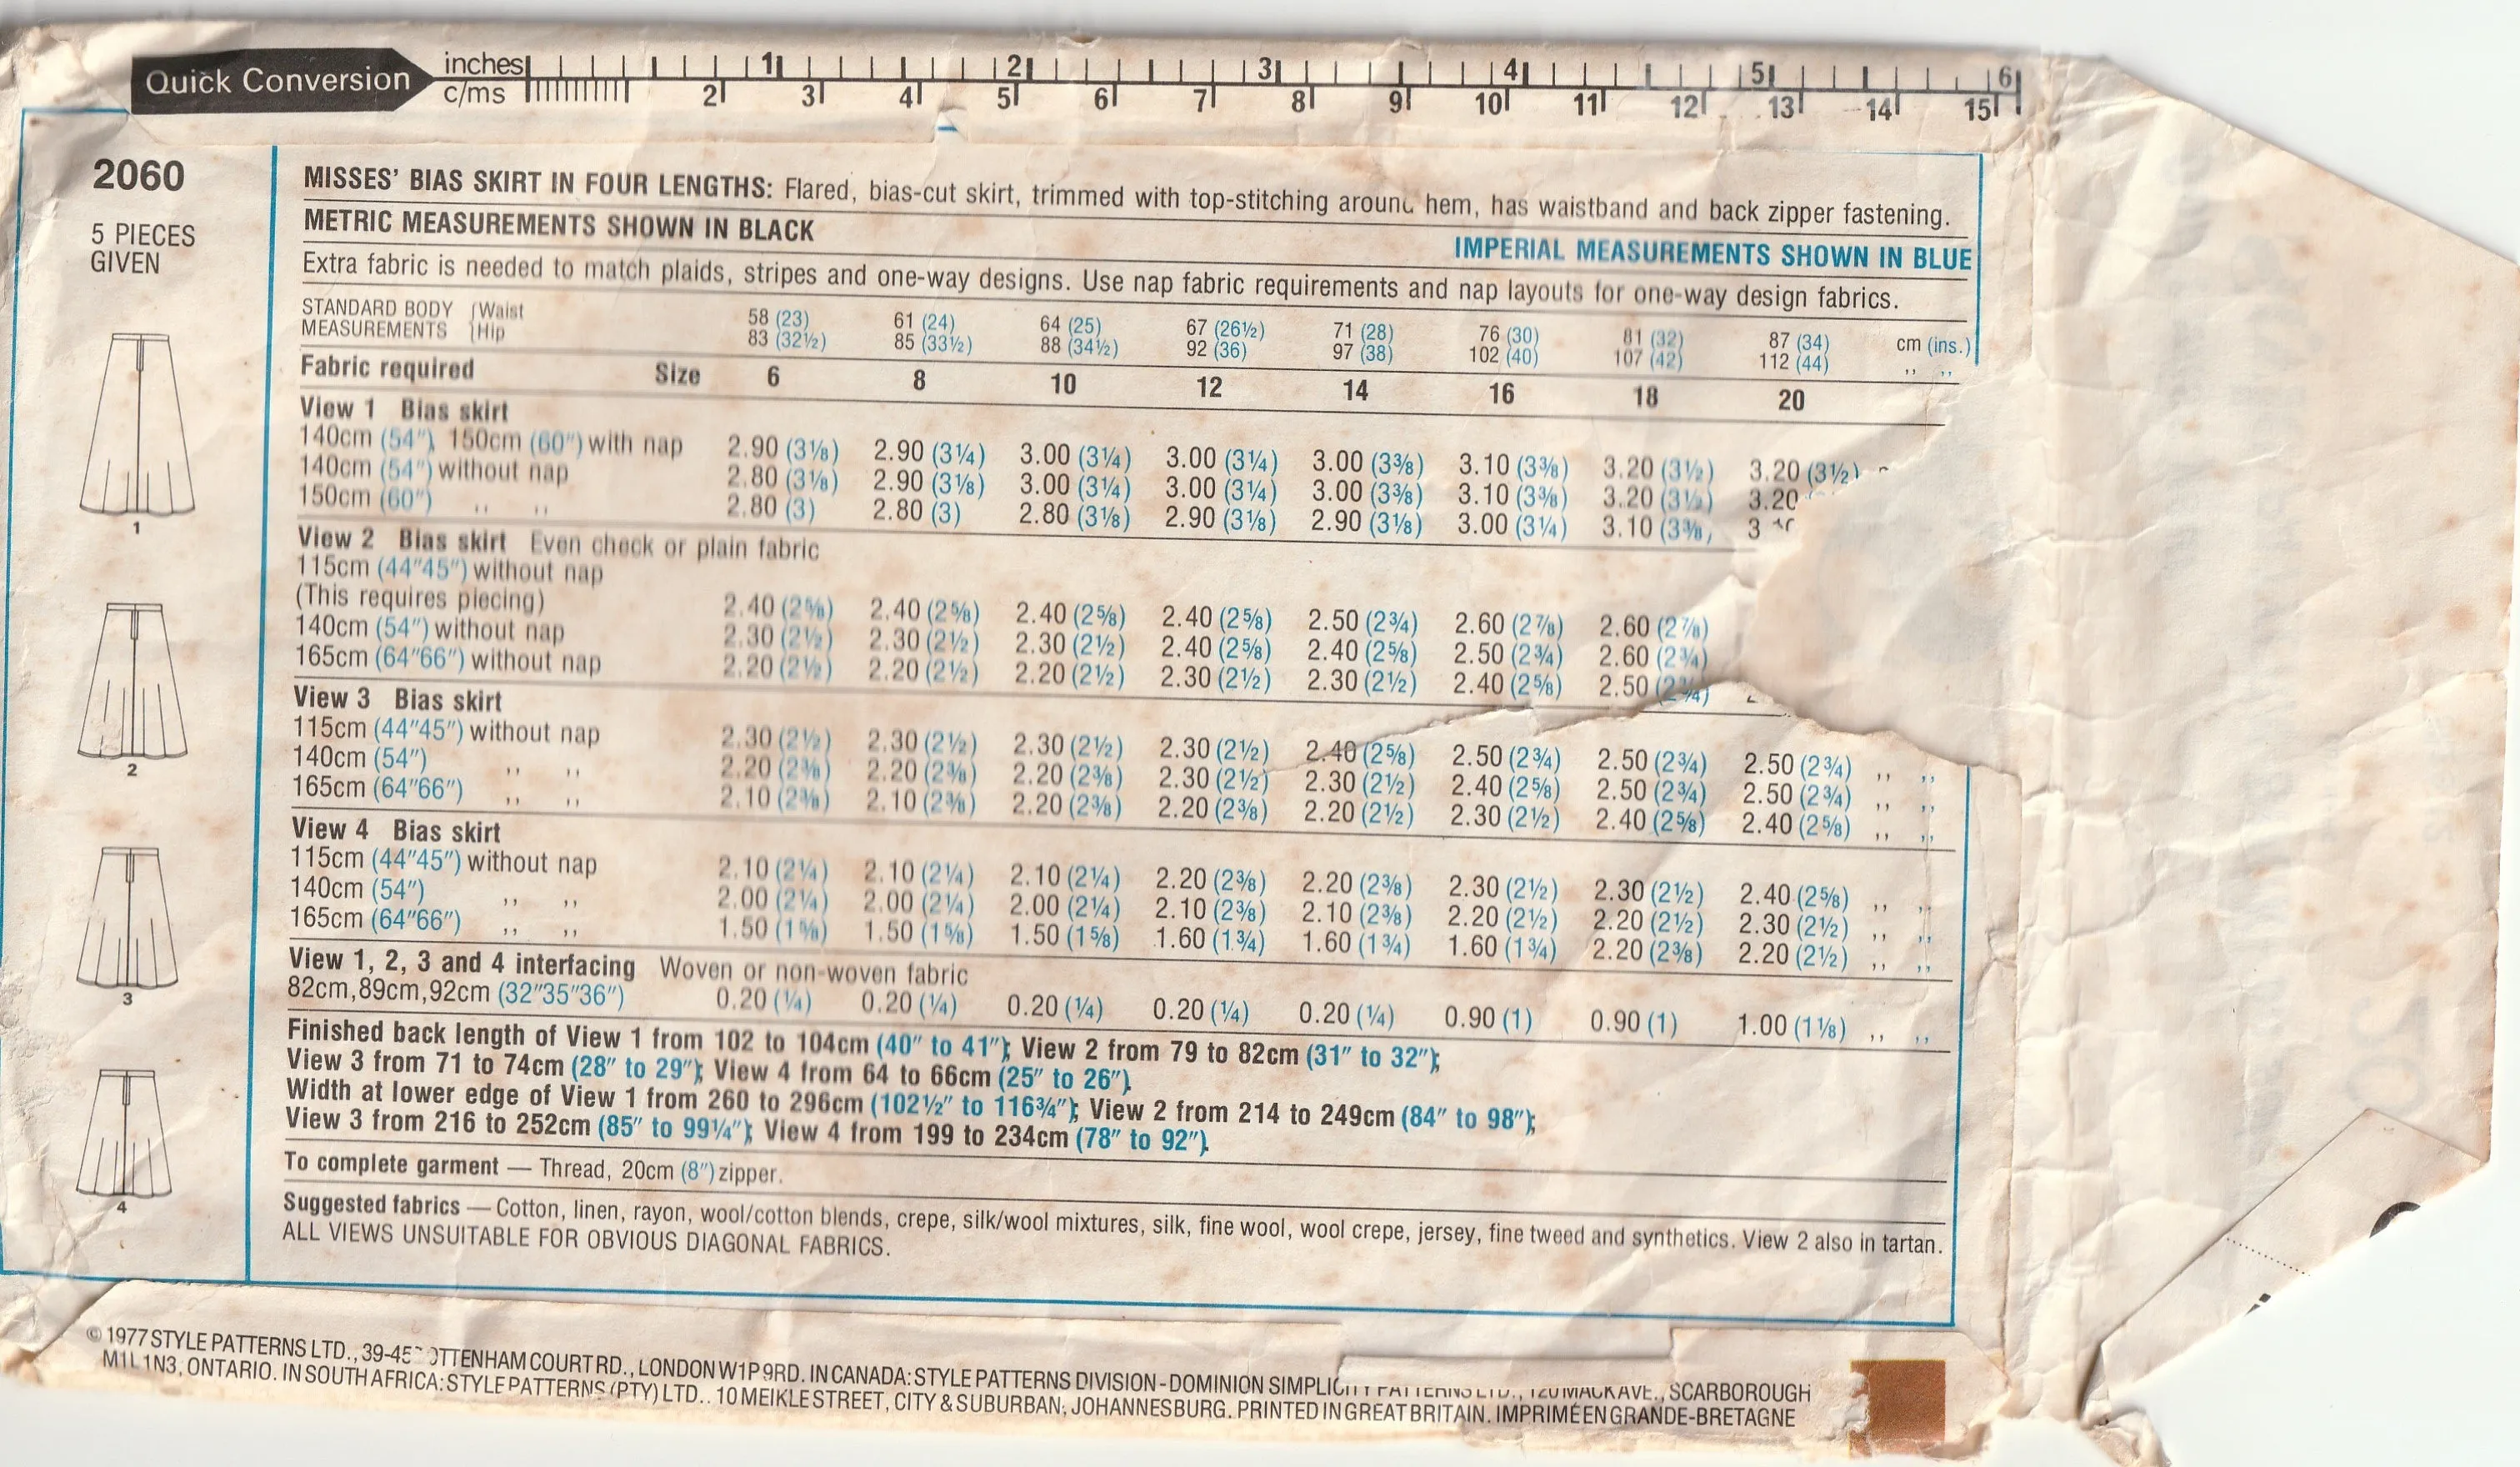 Quick Conversion
inches 1 2 3 4 5 6
c/ms 2 3 4 5 6 7 8 9 10 11 12 13 14 15
2060
5 PIECES
GIVEN
1
2
3
4
MISSES' BIAS SKIRT IN FOUR LENGTHS: Flared, bias-cut skirt, trimmed with top-stitching around hem, has waistband and back zipper fastening.
METRIC MEASUREMENTS SHOWN IN BLACK
IMPERIAL MEASUREMENTS SHOWN IN BLUE
Extra fabric is needed to match plaids, stripes and one-way designs. Use nap fabric requirements and nap layouts for one-way design fabrics.
STANDARD BODY Waist 58 (23) 61 (24) 64 (25) 67 (26½) 71 (28) 76 (30) 81 (32) 87 (34) cm (ins.)
MEASUREMENTS Hip 83 (32½) 85 (33½) 88 (34½) 92 (36) 97 (38) 102 (40) 107 (42) 112 (44) ,, ,,
Fabric required Size 6 8 10 12 14 16 18 20
View 1 Bias skirt
140cm (54"), 150cm (60") with nap 2.90 (3⅛) 2.90 (3¼) 3.00 (3¼) 3.00 (3¼) 3.00 (3⅜) 3.10 (3⅜) 3.20 (3½) 3.20 (3½)
140cm (54") without nap 2.80 (3⅛) 2.90 (3⅛) 3.00 (3¼) 3.00 (3¼) 3.00 (3⅜) 3.10 (3⅜) 3.20 (3½) 3.20
150cm (60") ,, ,, 2.80 (3) 2.80 (3) 2.80 (3⅛) 2.90 (3⅛) 2.90 (3⅛) 3.00 (3¼) 3.10 (3⅜)
View 2 Bias skirt Even check or plain fabric
115cm (44"45") without nap
(This requires piecing) 2.40 (2⅝) 2.40 (2⅝) 2.40 (2⅝) 2.40 (2⅝) 2.50 (2¾) 2.60 (2⅞) 2.60 (2⅞)
140cm (54") without nap 2.30 (2½) 2.30 (2½) 2.30 (2½) 2.40 (2⅝) 2.40 (2⅝) 2.50 (2¾) 2.60 (2¾)
165cm (64"66") without nap 2.20 (2½) 2.20 (2½) 2.20 (2½) 2.30 (2½) 2.30 (2½) 2.40 (2⅝) 2.50 (2¾)
View 3 Bias skirt
115cm (44"45") without nap 2.30 (2½) 2.30 (2½) 2.30 (2½) 2.30 (2½) 2.40 (2⅝) 2.50 (2¾) 2.50 (2¾) 2.50 (2¾) ,, ,,
140cm (54") ,, ,, 2.20 (2⅜) 2.20 (2⅜) 2.20 (2⅜) 2.30 (2½) 2.30 (2½) 2.40 (2⅝) 2.50 (2¾) 2.50 (2¾) ,, ,,
165cm (64"66") ,, ,, 2.10 (2⅜) 2.10 (2⅜) 2.20 (2⅜) 2.20 (2⅜) 2.20 (2½) 2.30 (2½) 2.40 (2⅝) 2.40 (2⅝) ,, ,,
View 4 Bias skirt
115cm (44"45") without nap 2.10 (2¼) 2.10 (2¼) 2.10 (2¼) 2.20 (2⅜) 2.20 (2⅜) 2.30 (2½) 2.30 (2½) 2.40 (2⅝) ,, ,,
140cm (54") ,, ,, 2.00 (2¼) 2.00 (2¼) 2.00 (2¼) 2.10 (2⅜) 2.10 (2⅜) 2.20 (2½) 2.20 (2½) 2.30 (2½) ,, ,,
165cm (64"66") ,, ,, 1.50 (1⅝) 1.50 (1⅝) 1.50 (1⅝) 1.60 (1¾) 1.60 (1¾) 1.60 (1¾) 2.20 (2⅜) 2.20 (2½) ,, ,,
View 1, 2, 3 and 4 interfacing Woven or non-woven fabric
82cm,89cm,92cm (32"35"36") 0.20 (¼) 0.20 (¼) 0.20 (¼) 0.20 (¼) 0.20 (¼) 0.90 (1) 0.90 (1) 1.00 (1⅛) ,, ,,
Finished back length of View 1 from 102 to 104cm (40" to 41"); View 2 from 79 to 82cm (31" to 32");
View 3 from 71 to 74cm (28" to 29"); View 4 from 64 to 66cm (25" to 26").
Width at lower edge of View 1 from 260 to 296cm (102½" to 116¾"); View 2 from 214 to 249cm (84" to 98");
View 3 from 216 to 252cm (85" to 99¼"); View 4 from 199 to 234cm (78" to 92").
To complete garment — Thread, 20cm (8") zipper.
Suggested fabrics — Cotton, linen, rayon, wool/cotton blends, crepe, silk/wool mixtures, silk, fine wool, wool crepe, jersey, fine tweed and synthetics. View 2 also in tartan.
ALL VIEWS UNSUITABLE FOR OBVIOUS DIAGONAL FABRICS.
© 1977 STYLE PATTERNS LTD., 39-45 TOTTENHAM COURT RD., LONDON W1P 9RD. IN CANADA: STYLE PATTERNS DIVISION - DOMINION SIMPLICITY PATTERNS LTD., 120 MACK AVE., SCARBOROUGH
M1L 1N3, ONTARIO. IN SOUTH AFRICA: STYLE PATTERNS (PTY) LTD.. 10 MEIKLE STREET, CITY & SUBURBAN, JOHANNESBURG. PRINTED IN GREAT BRITAIN. IMPRIMÉ EN GRANDE-BRETAGNE